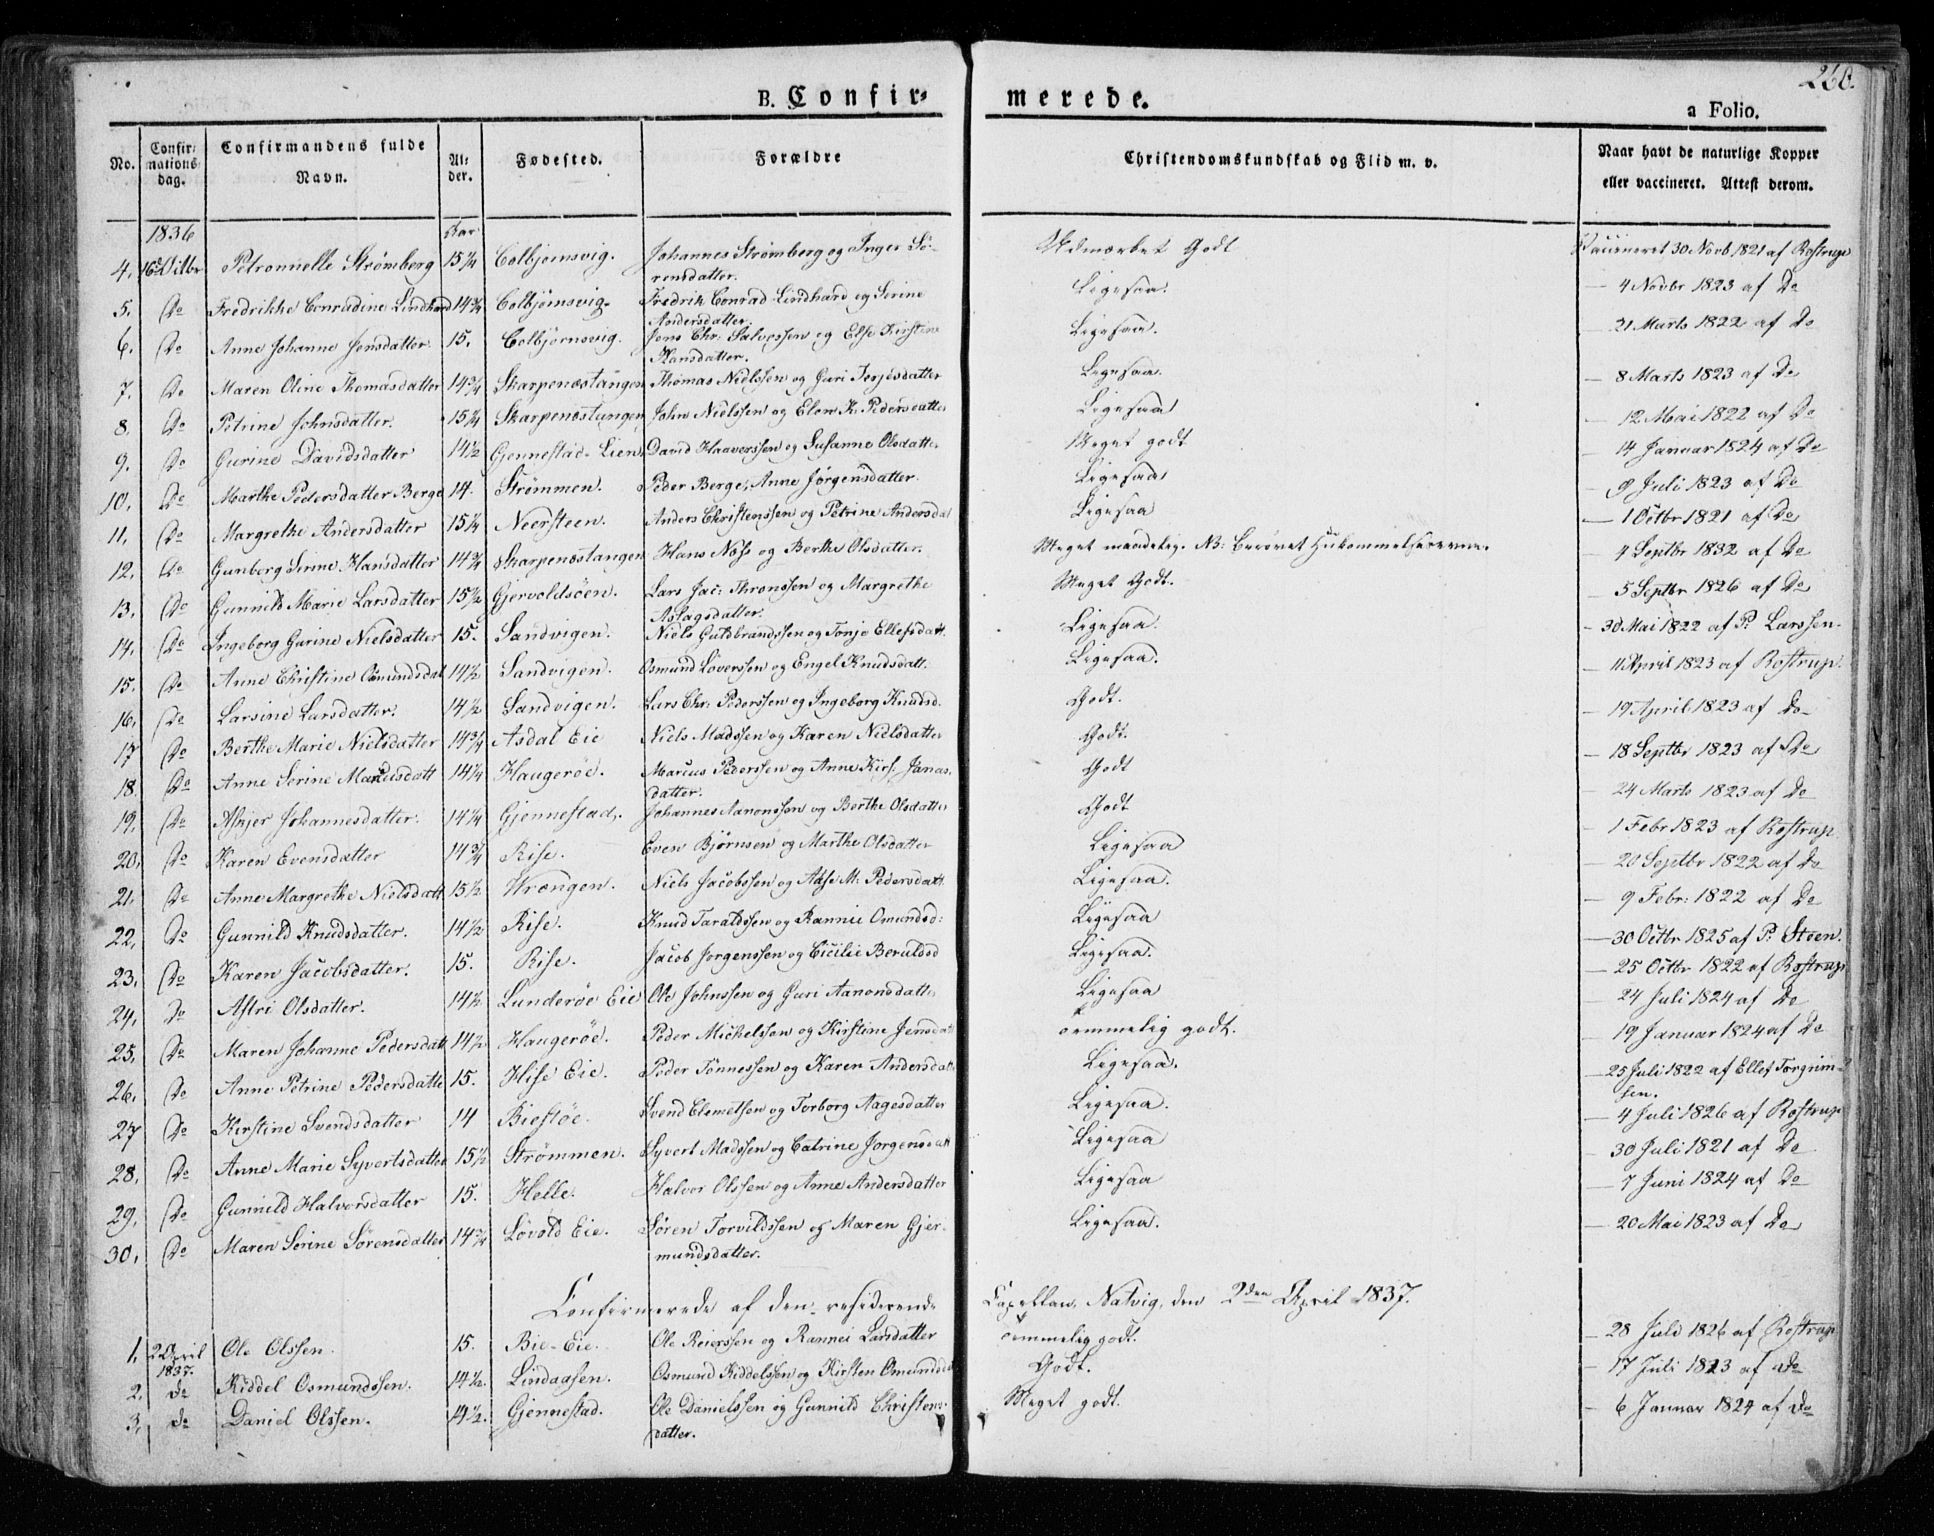 260.
B. Confir-merede.
a Folio.
No. Confirmationsdag. Confirmandens fulde Navn. Alder. Fødested. Forældre Christendomskundskab og Flid m. v. Naar havt de naturlige Kopper eller vaccineret. Attest derom.
1836 Aar
4. 16d Octbr Petronnelle Strømberg 15 1/4 Colbjørnsvig. Johannes Strømberg og Inger Sörensdatter. Udmærket Godt Vaccineret 30 Novb 1821 af Rostrup
5. Do Fredrikke Conradine Lindhard 14 3/4 Colbjørnsvig Fredrik Conrad Lindhard og Serine Andersdatter. Ligesaa. — 4 Novbr 1823 af Do
6. Do Anne Johanne Jensdatter. 15. Colbjørnsvig. Jens Chr: Salvessen og Else Kirstine Hansdatter. Ligesaa. — 21 Marts 1822 af Do
7. Do Maren Oline Thomasdatter 14 3/4 Skarpenæstangen Thomas Nielssen og Guri Terjesdatter Ligesaa. — 8 Marts 1823 af Do
8. Do Petrine Johnsdatter. 15 1/4 Skarpenæstangen John Nielssen og Elen K. Pedersdatter Ligesaa — 12 Mai 1822 af Do
9. Do Gurine Davidsdatter 14 1/2 Gjennestad-Lien David Haaverssen og Susanne Olsdatter Meget godt — 14 Januar 1824 af Do
10. Do Marthe Pedersdatter Berge 14. Strømmen. Peder Berge, Anne Jørgensdatter. Ligesaa — 9 Juli 1823 af Do
11. Do Margrethe Andersdatter 15 1/4 Neersteen. Anders Christenssen og Petrine Andersdat Ligesaa — 1 Octbr 1821 af Do
12. Do Gunberg Serine Hansdatter 14 3/4 Skarpenæstangen Hans Næss og Berthe Olsdatter. Meget maadelig. NB: berøvet Hukommelsesevne. — 4 Septbr 1832 af Do
13. Do Gunnild Marie Larsdatter 15 1/2 Gjervoldsöen. Lars Jac: Thronssen og Margrethe Aslagsdatter. Meget Godt. — 5 Septbr 1826 af Do
14. Do Ingeborg Gurine Nielsdatter 15. Sandvigen. Niels Guldbrandssen og Tonje Ellefsdatt. Ligesaa. — 30 Mai 1822 af P. Larssen.
15. Do Anne Christine Osmundsdat 14 1/2 Sandvigen. Osmund Löverssen og Engel Knudsdatt. Ligesaa. — 11 April 1823 af Rostrup.
16. Do Larsine Larsdatter. 14 1/2 Sandvigen. Lars Chr: Pederssen og Ingeborg Knudsd. Godt. — 19 April 1823 af Do
17 Do Berthe Marie Nielsdatter 14 3/4 Asdal Eie Niels Madssen og Karen Nielsdatter Godt. — 18 Septbr 1823 af Do
18. Do Anne Serine Marcusdatt 14 1/4 Haugeröe. Marcus Pederssen og Anne Kirs. Janasdatter. Godt — 24 Marts 1823 af Do
19. Do Johannesdatter. 14 1/4 Gjennestad. Johannes Aanonssen og Berthe Olsdatter Godt — 1 Febr 1823 af Rostrup
20. Do Karen Evensdatter 14 3/4 Rise. Even Bjørnsen og Marthe Olsdatter Ligesaa — 20 Septbr 1822 af Do
21. Do Anne Margrethe Nielsdatt 15 1/2 Wrængen. Niels Jacobssen og M: Pedersdatt. Ligesaa. — 9 Febr: 1822 af Do
22. Do Gunnild Knudsdatter. 14 1/2 Rise. Knud Taraldssen og Rannie Omundsd: Ligesaa — 30 Octbr 1825 af P. Steen.
23. Do Karen Jacobsdatter. 15. Rise. Jacob Jorgenssen og Cicilie Beruldsd Ligesaa. — 25 Octbr 1822 af Rostrup
24. Do Astri Olsdatter. 14 1/2 Lunderöe Eie Ole Johnssen og Guri Aanonsdatter Ligesaa — 24 Juli 1824 af Do
25. Do Maren Johanne Pedersdatt 14 1/2 Haugeröe. Peder Michelssen og Kirstine Jensdatt temmelig godt. — 19 Januar 1824 af Do
26. Do Anne Petrine Pedersdatter 15. Hise Eie. Peder Tönnessen og Karen Andersdatt Ligesaa. — 25 Juli 1822 af Ellef Torgrimsen.
27 Do Kirstine Svendsdatter 14 Biestöe. Svend Clemetsen og Torborg Aagesdatter Ligesaa. — 4 Juli 1826 af Rostrup
28. Do Anne Marie Syvertsdatter 15 1/2 Strømmen. Syvert Madssen og Catrine Jorgensdatt Ligesaa — 30 Juli 1821 af Do
29. Do Gunnild Halvorsdatter 15. Helle. Halvor Olssen og Anne Andersdatter Ligesaa — 7 Juni 1824 af Do
30. Do Maren Serine Sörensdatter 14 3/4 Lövold Eie. Sören Torvildssen og Maren Gjermundsdatter. Ligesaa. — 20 Mai 1823 af Do
Confirmerede af den residerende Capellan, Natvig, den 2den April 1837.
1. 2 April 1837. Ole Olssen. 15. Bie-Eie. Ole Reierssen og Rannei Larsdatter temmelig godt. — 28 Juli 1826 af Rostrup
2. do Riddel Osmundssen. 14 1/2. Lindaasen. Osmund Riddelssen og Kirsten Omundsdat Godt. — 17 Juli 1823 af do
3. do Daniel Olssen. 14 1/2. Gjennestad. Ole Danielssen og Gunnild Christensdatter. Meget godt. — 6 Januar 1824 af do